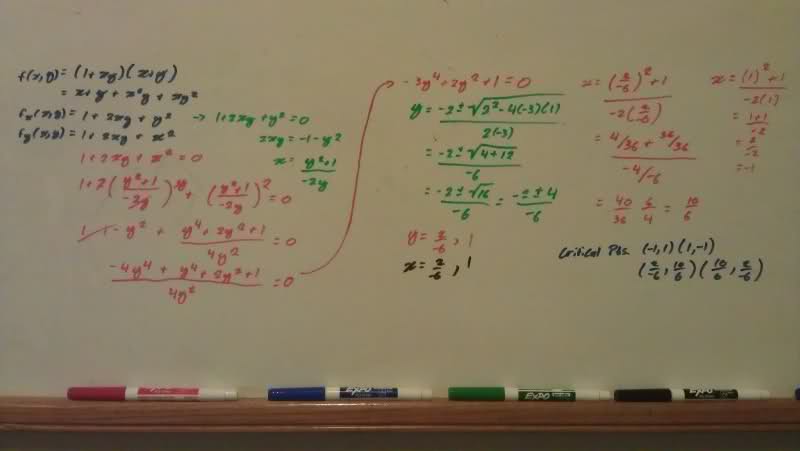 f(x,y) = (1+xy)(x+y)
= x+y + x²y + xy²
fx(x,y) = 1 + 2xy + y² → 1+2xy+y² = 0
fy(x,y) = 1 + 2xy + x²
2xy = -1-y²
x = (y²+1)/(-2y)
1 + 2xy + x² = 0
1+2((y²+1)/(-2y))y + ((y²+1)/(-2y))² = 0
1 - 1 - y² + (y⁴+2y²+1)/(4y²) = 0
(-4y⁴ + y⁴ + 2y²+1)/(4y²) = 0
-3y⁴+2y²+1 = 0
y = (-2 ± √(2²-4(-3)(1)))/(2(-3))
= (-2 ± √(4+12))/(-6)
= (-2 ± √16)/(-6) = (-2 ± 4)/(-6)
y = 2/-6, 1
x = 2/-6, 1
x = ((2/-6)²+1)/(-2(2/-6))
= (4/36 + 36/36)/(-4/-6)
= 40/36 6/4 = 10/6
x = ((1)²+1)/(-2(1))
= (1+1)/-2
= 2/-2
= -1
Critical Pts. (-1,1) (1,-1)
(2/-6, 10/6) (10/6, 2/-6)
EXPO
EXPO
EXPO
EXPO